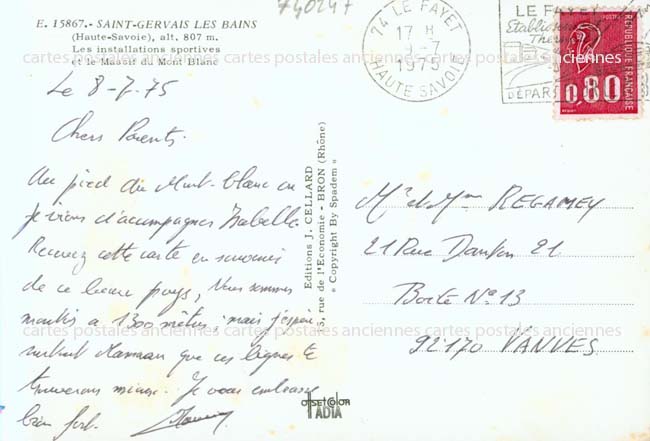 E. 15867.- SAINT-GERVAIS LES BAINS
(Haute-Savoie), alt. 807 m.
Les installations sportives
et le Massif du Mont Blanc
740247
74 LE FAYET
17 H
9-7
1975
HAUTE SAVOIE
LE FAYET
Etablissement
Thermal
DÉPART
REPUBLIQUE FRANÇAISE
POSTES
0,80
Le 8-7-75
Chers Parents.
Au pied du Mont-blanc où
je viens d'accompagner Isabelle.
Recevez cette carte en souvenir
de ce beau pays, Nous sommes
montés a 1300 mètres, mais j'espère
surtout Maman que ces lignes te
trouverons mieux. Je vous embrasse
bien fort.
Editions J. CELLARD
5, rue de l'Economie - BRON (Rhône)
« Copyright By Spadem »
Mr et Mme REGAMEY
21 Rue Danton 21
Boite No 13
92170 VANVES
offsetcolor
IADIA
cartes postales anciennes